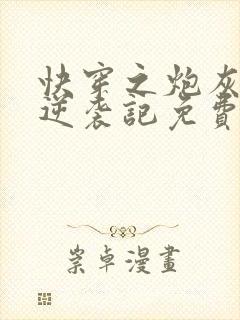 快穿之炮灰
逆袭記免費
崇卓漫畫